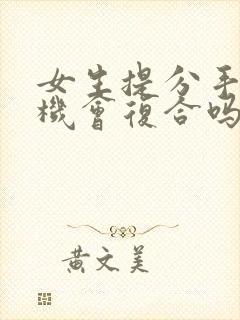 女生提分手
機會復合嗎
黃文美